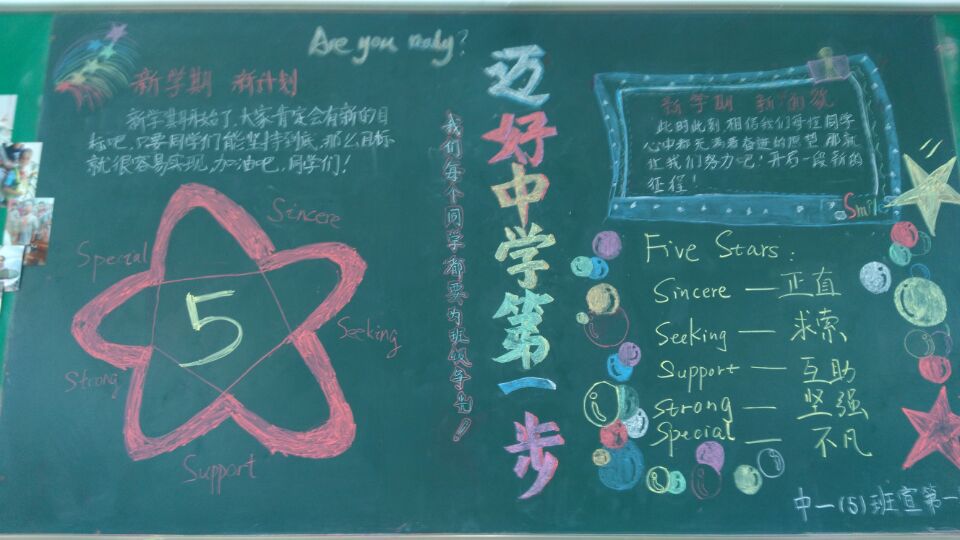 Are you ready?
新学期 新计划
新学期开始了,大家肯定会有新的目
标吧,只要同学们能坚持到底,那么目标
就很容易实现,加油吧,同学们!
Sincere
Special
5
Seeking
Strong
Support
我们每个同学都要为班级争光!
迈好中学第一步
新学期 新面貌
此时此刻,相信我们每位同学
心中都充满着奋进的愿望,那就
让我们努力吧!开启一段新的
征程!
Smile
Five Stars:
Sincere — 正直
Seeking — 求索
Support — 互助
Strong — 坚强
Special — 不凡
中一(5)班宣第一